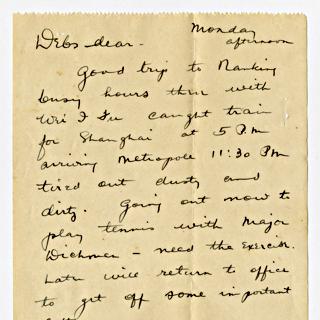 Monday
afternoon
Debs dear -
Good trip to Nanking
busy hours there with
Wei I Fu caught train
for Shanghai at 5 P.m
arriving Metropole 11:30 Pm
tired out dusty and
dirty. Going out now to
play tennis with Major
- need the exercise.
Later will return to office
to get off some important